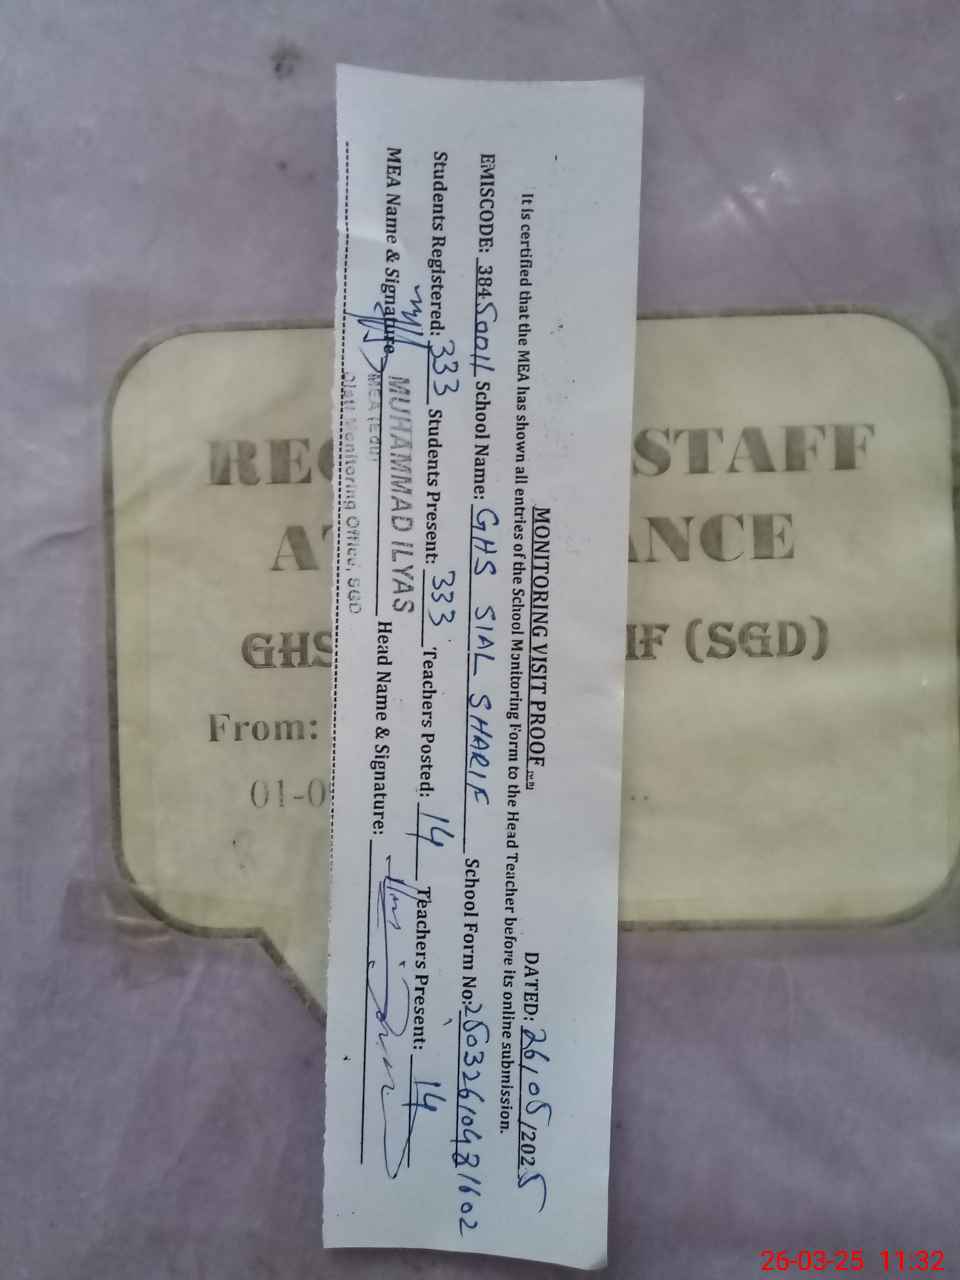 MONITORING VISIT PROOF
DATED: 26/05/2025
It is certified that the MEA has shown all entries of the School Monitoring Form to the Head Teacher before its online submission.
EMISCODE: 38450011 School Name: GHS SIAL SHARIF School Form No: 25032610481602
Students Registered: 333 Students Present: 333 Teachers Posted: 14 Teachers Present: 14
MEA Name & Signature Head Name & Signature:
MUHAMMAD ILYAS
MEA (Edu)
Monitoring Office, SGD
STAFF
GHS (SGD)
From:
26-03-25 11:32